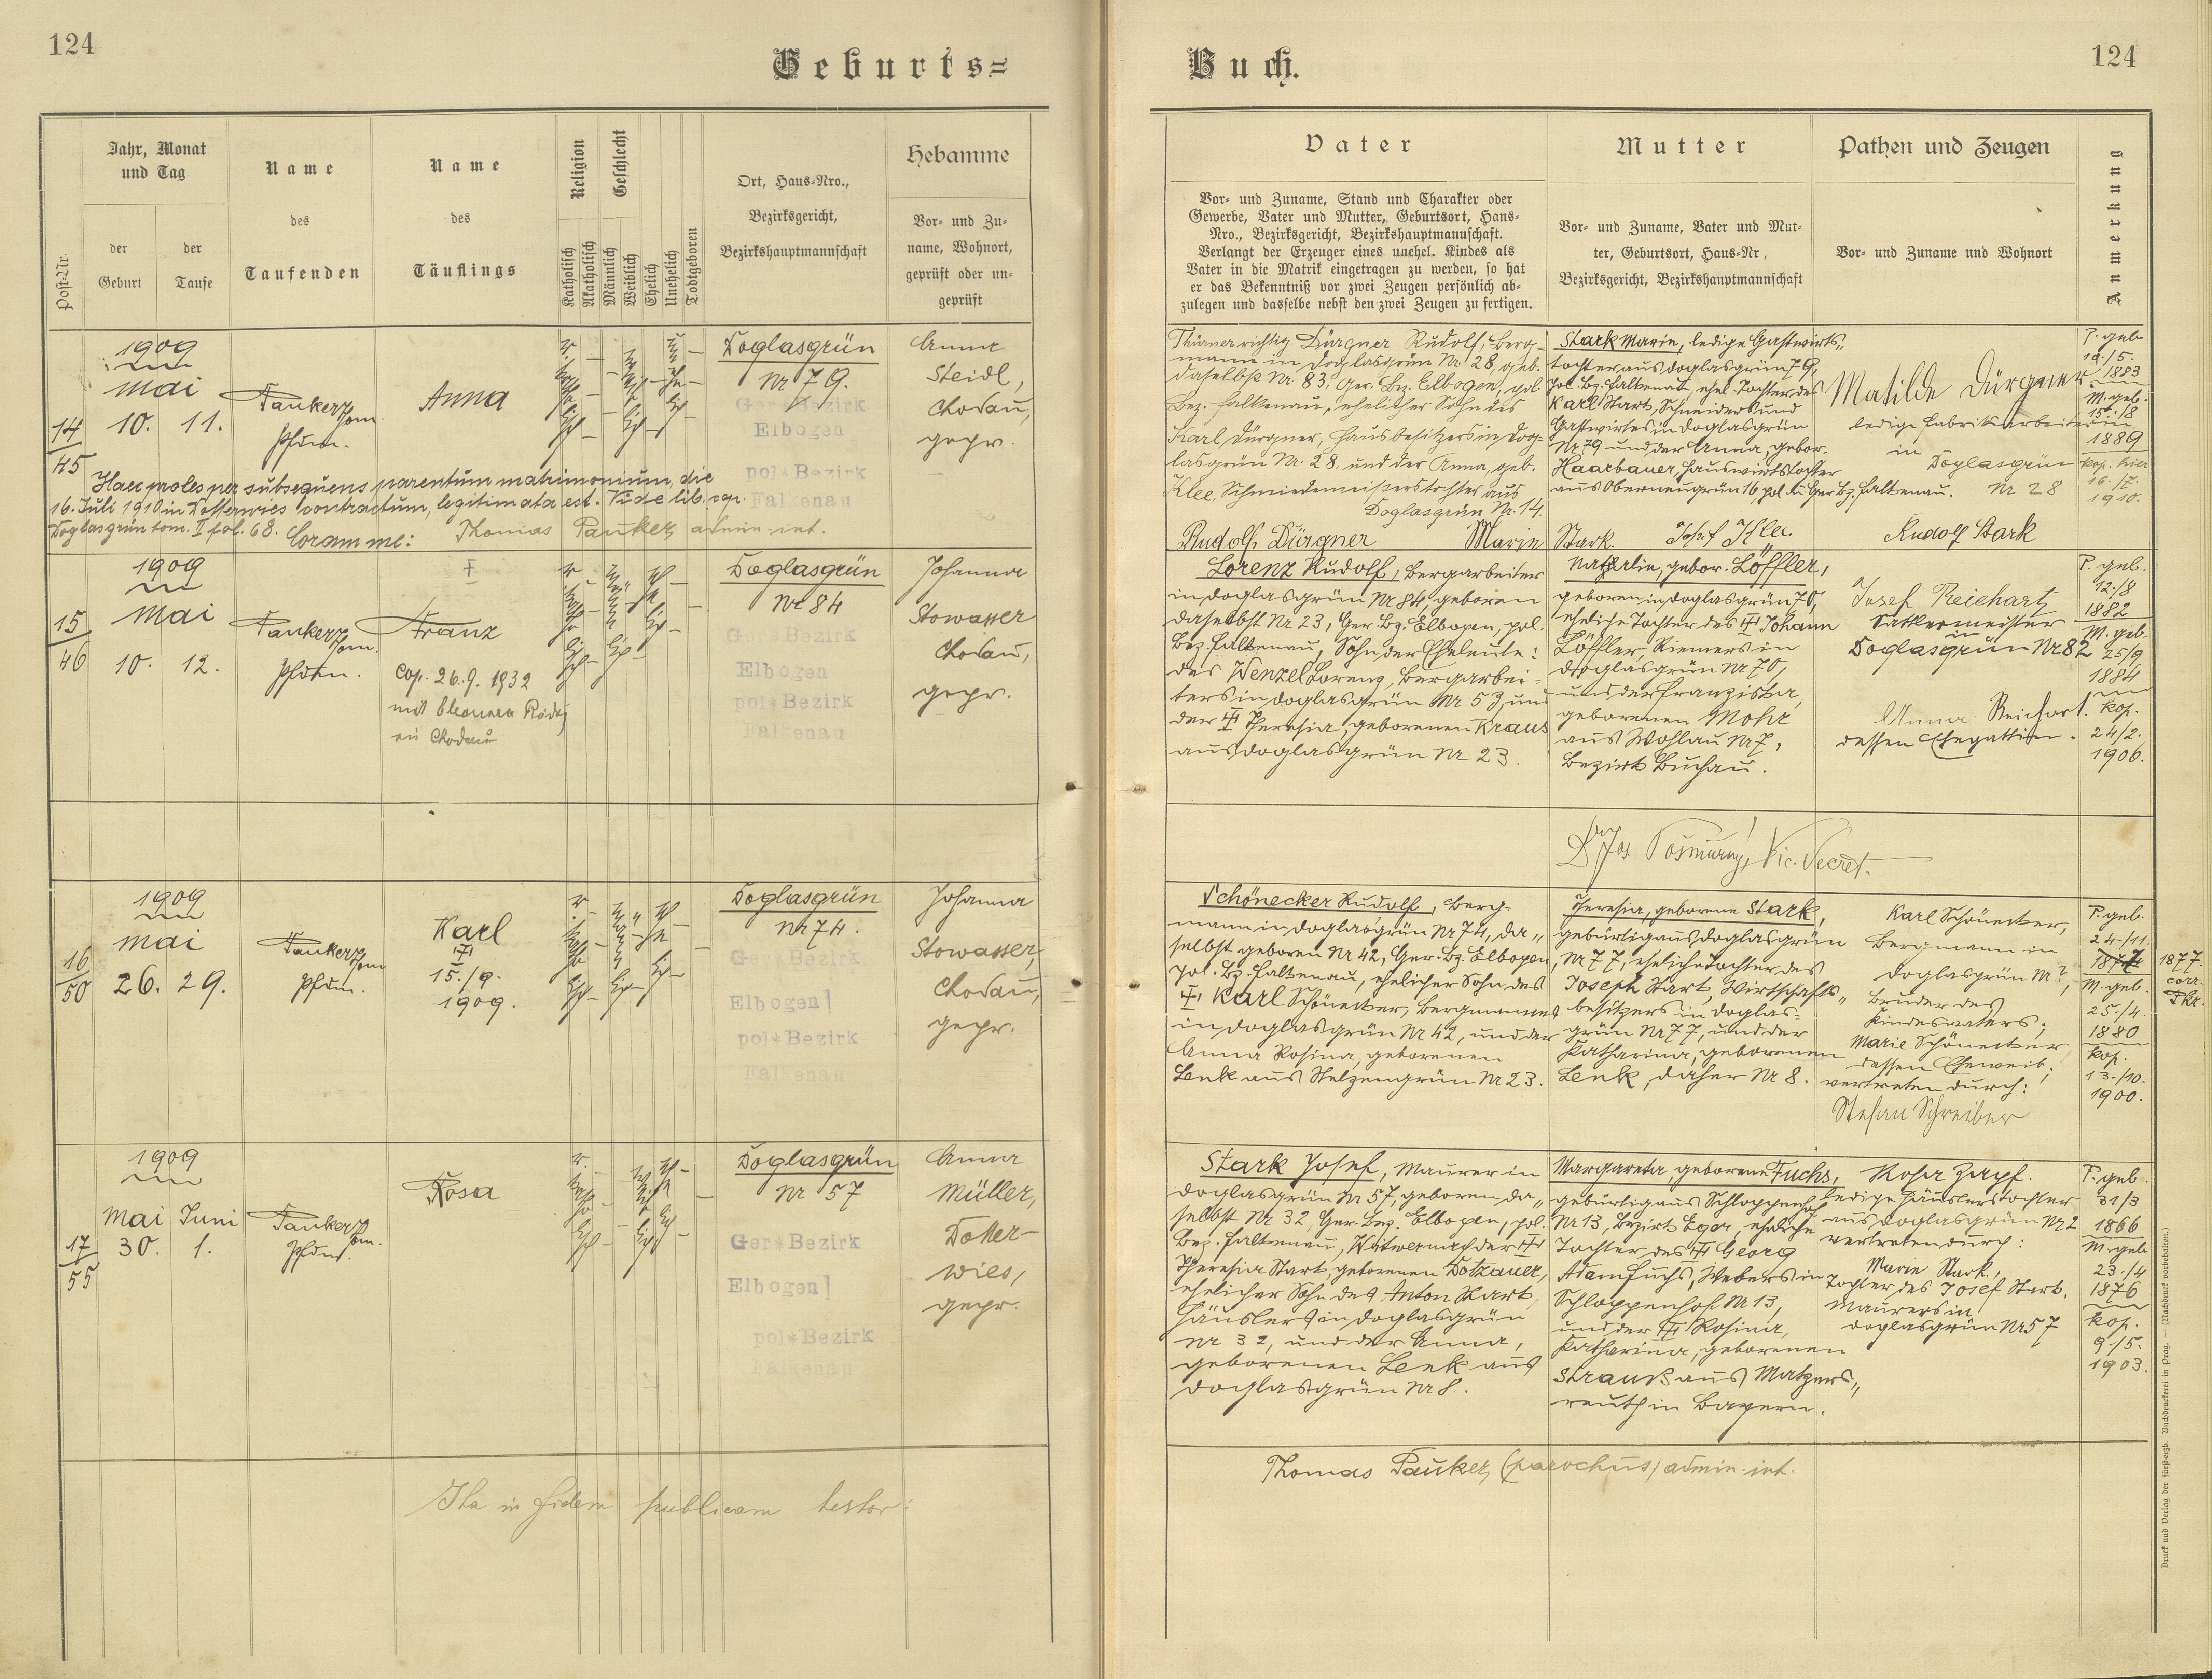 124
Geburts=
Jahr, Monat
und Tag
Name
Name
Religion
Geschlecht
Hebamme
Ort, Haus=Nro.,
des
des
Bezirksgericht,
Vor= und Zu=
der
der
Bezirkshauptmannschaft
name, Wohnort,
Taufenden
Täuflings
geprüft oder un=
Post=Nr.
Geburt
Taufe
Katholisch
Akatholisch
Männlich
Weiblich
Ehelich
Unehelich
Todtgeboren
geprüft
1909
Mai
14
45
10. 11.
Pauker Thom
Pfdm.
Anna
Doglasgrün
Nr 79.
Ger*Bezirk
Elbogen
pol*Bezirk
Falkenau
Anna
Steidl,
Chodau,
gepr.
Haec proles per subsequens parentum matrimonium, die
16. Juli 1910 in Dotterwies contractum, legitimata est. Vide lib. cop.
Doglasgrün tom. II fol. 68. Coram me: Thomas Pauker, admin. int.
1909
Mai
15
46
10. 12.
Pauker Thom.
Pfdm.
Franz
Cop. 26.9.1932
mit Eleonora
in Chodau
Doglasgrün
Nr 84
Ger*Bezirk
Elbogen
pol*Bezirk
Falkenau
Johanna
Stowasser
Chodau,
gepr.
1909
Mai
16
50
26. 29.
Pauker Thom
Pfdm.
Karl
15./9.
1909.
Doglasgrün
Nr 74.
Ger*Bezirk
Elbogen
pol*Bezirk
Falkenau
Johanna
Stowasser,
Chodau,
gepr.
1909
Mai Juni
17
55
30. 1.
Pauker Thom.
Pfdm.
Rosa
Doglasgrün
Nr 57
Ger*Bezirk
Elbogen
pol*Bezirk
Falkenau
Anna
Müller,
Dotter-
wies,
gepr.
Ita in fidem publicam testor:
Buch.
124
Vater
Mutter
Pathen und Zeugen
Anmerkung
Vor= und Zuname, Stand und Charakter oder
Gewerbe, Vater und Mutter, Geburtsort, Haus=
Nro., Bezirksgericht, Bezirkshauptmannschaft.
Verlangt der Erzeuger eines unehel. Kindes als
Vater in die Matrik eingetragen zu werden, so hat
er das Bekenntniß vor zwei Zeugen persönlich ab=
zulegen und dasselbe nebst den zwei Zeugen zu fertigen.
Vor= und Zuname, Vater und Mut=
ter, Geburtsort, Haus=Nr,
Bezirksgericht, Bezirkshauptmannschaft
Vor= und Zuname und Wohnort
Thürner richtig Dürgner Rudolf, Berg=
mann in Doglasgrün Nr. 28, geb.
daselbst Nr. 83, Ger. Bz. Elbogen, pol.
Bez. Falkenau, ehelicher Sohn des
Karl Dürgner, Hausbesitzers in Dog=
lasgrün Nr. 28, und der Anna, geb.
Klee, Schmiedemeisterstochter aus
Doglasgrün Nr. 14.
Stark Marie, ledige Gastwirts„
tochter aus Doglasgrün 79,
pol. Bz. Falkenau, ehel. Tochter des
Karl Stark, Schneiders und
Gastwirtes in Doglasgrün
Nr. 79 und der Anna, gebor.
Haarbauer, Hauswirtstochter
aus Oberneugrün 16 pol. u. Ger. Bz. Falkenau.
Matilde Dürgner
ledige Fabriksarbeiterin
in Doglasgrün
Nr 28
P. geb.
1883
M. geb.
15./8
1889
kop. hier
16./7.
1910.
Rudolf Dürgner Marie Stark. Josef Rudolf Stark
Lorenz Rudolf, Bergarbeiter
in Doglasgrün Nr 84, geboren
daselbst Nr 23, Ger. Bz. Elbogen, pol.
Bez. Falkenau, Sohn der Eheleute:
des Wenzel Lorenz, Bergarbei=
ters in Doglasgrün Nr 53, und
der Theresia, geborenen Kraus
aus Doglasgrün Nr 23.
Nathalia, gebor. Löffler,
geboren in Doglasgrün 70,
eheliche Tochter des Johann
Löffler, Riemers in
Doglasgrün Nr 70,
und der Franziska,
geborenen Mohr
aus Wohlau Nr 7,
Bezirk Buchau.
Josef Reichart
Sattlermeister
in
Doglasgrün Nr 82
Anna Reichart.
dessen Ehegattin.
P. geb.
12/8
1882
M. geb.
25/9
1884
kop.
24/2.
1906.
Vic. Secret.
Schönecker Rudolf, Berg=
mann in Doglasgrün Nr 74, da„
selbst geboren Nr 42, Ger. Bz. Elbogen,
pol. Bz. Falkenau, ehelicher Sohn des
Karl Schönecker, Bergmannes
in Doglasgrün Nr 42, und der
Anna Rosina, geborenen
Lenk aus Stelzengrün Nr 23.
Theresia, geborene Stark,
gebürtig aus Doglasgrün
Nr 77, eheliche Tochter des
Joseph Stark, Wirtschafts„
besitzers in Doglas=
grün Nr 77, und der
Katharina, geborenen
Lenk, daher Nr 8.
Karl Schönecker,
Bergmann in
Doglasgrün Nr ?,
Bruder des
Kindesvaters;
Marie Schönecker,
dessen Eheweib;
vertreten durch:
Stefan Schreiber
P. geb.
24./11.
1877
1877.
corr.
M. geb.
25./4.
1880
kop.
13./10.
1900.
Stark Josef, Maurer in
Doglasgrün Nr 57, geboren da„
selbst Nr 32, Ger. Bez. Elbogen, pol.
Bez. Falkenau, Witwer nach der
Theresia Stark, geborenen Dotzauer,
ehelicher Sohn des Anton Stark,
Häuslers in Doglasgrün
Nr 32, und der Anna,
geborenen Lenk aus
Doglasgrün Nr 8.
Margareta, geborene Fuchs,
gebürtig aus Schloppenhof
Nr 13, Bezirk Eger, eheliche
Tochter des Georg
Adam Fuchs, Webers in
Schloppenhof Nr 13,
und der Rosina,
Katharina, geborenen
Strauß aus Matzers„
reuth in Bayern.
Rosa Zapf.
ledige Häuslerstochter
aus Doglasgrün Nr 2
vertreten durch:
Marie Stark,
Tochter des Josef Stark.
Maurers in
Doglasgrün Nr 57
P. geb.
31/3
1866
M. geb
23./4
1876
kop.
9./5.
1903.
Thomas Pauker, (parochus) admin. int.
Druck und Verlag der fürsterzb. Buchdruckerei in Prag. — (Nachdruck vorbehalten.)